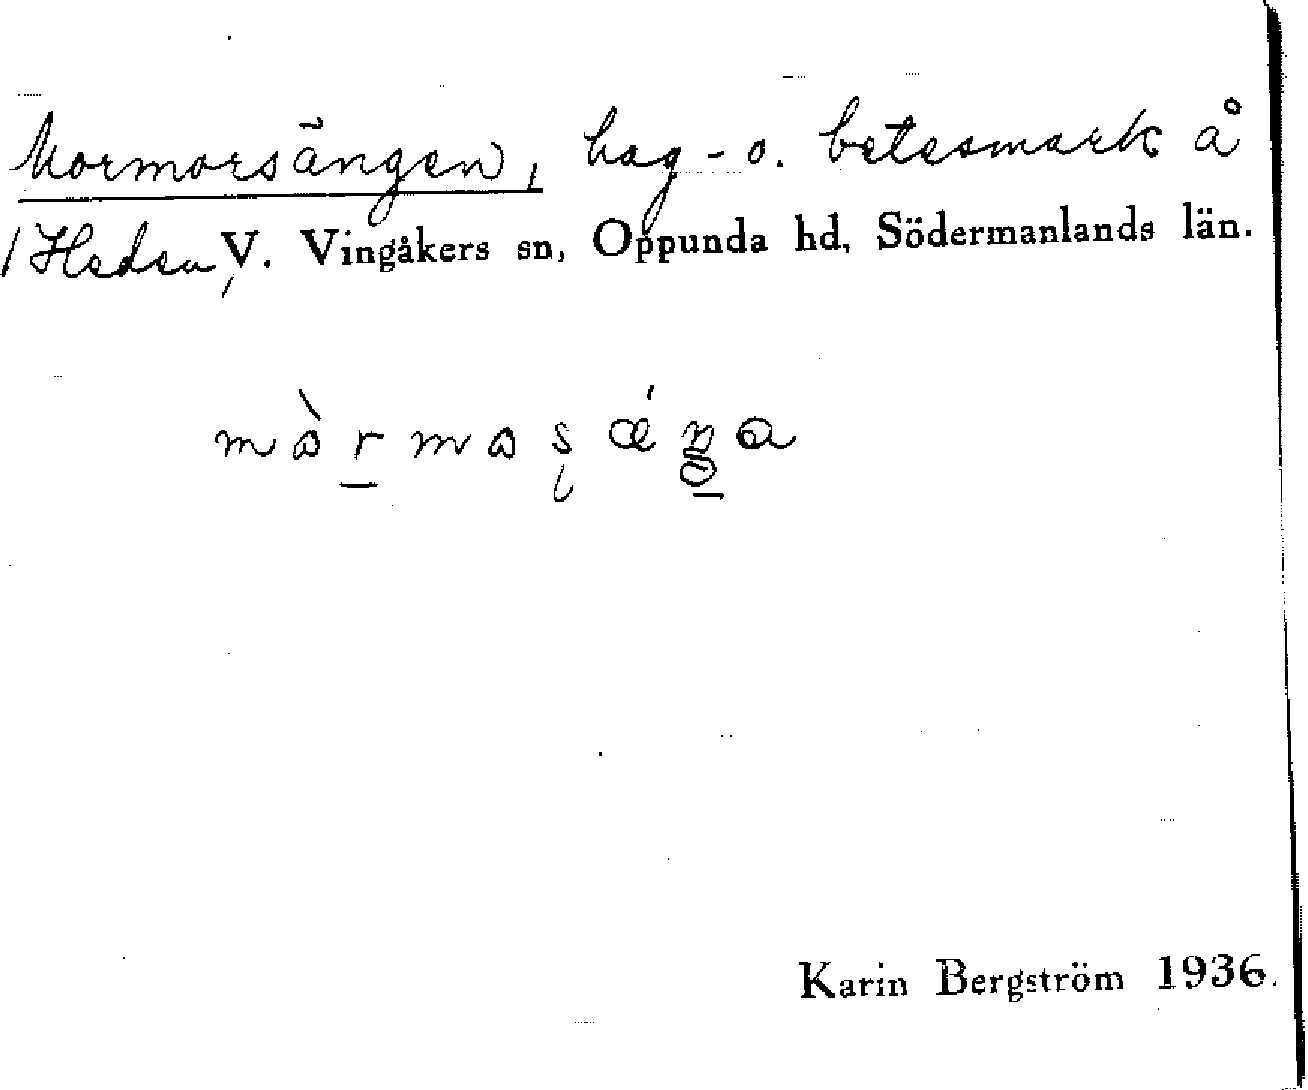 Mormorsängen, hag- o. betesmark å
/Heden, V. Vingåkers sn, Oppunda hd, Södermanlands län.
Karin Bergström 1936.